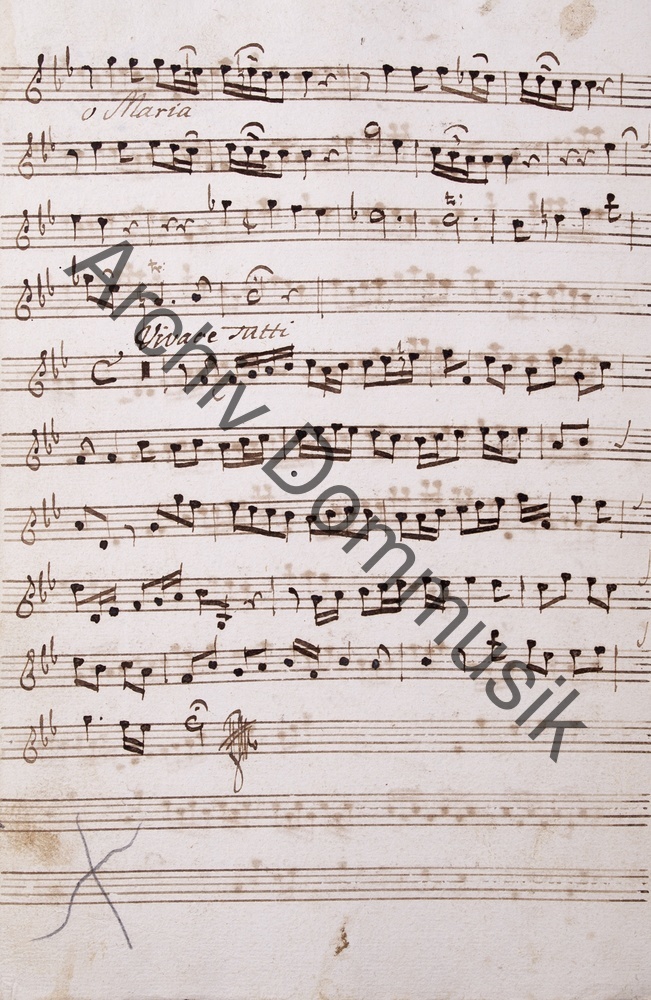 o Maria
Vivace Tutti
Archiv Dommusik